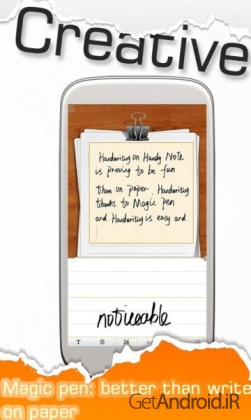 Creative
Handwriting on Handy Note
is proving to be fun
than on paper. Handwriting
thanks to Magic pen
and Handwriting is easy and
noticeable
T
24
Magic pen: better than write
on paper
GetAndroid.iR